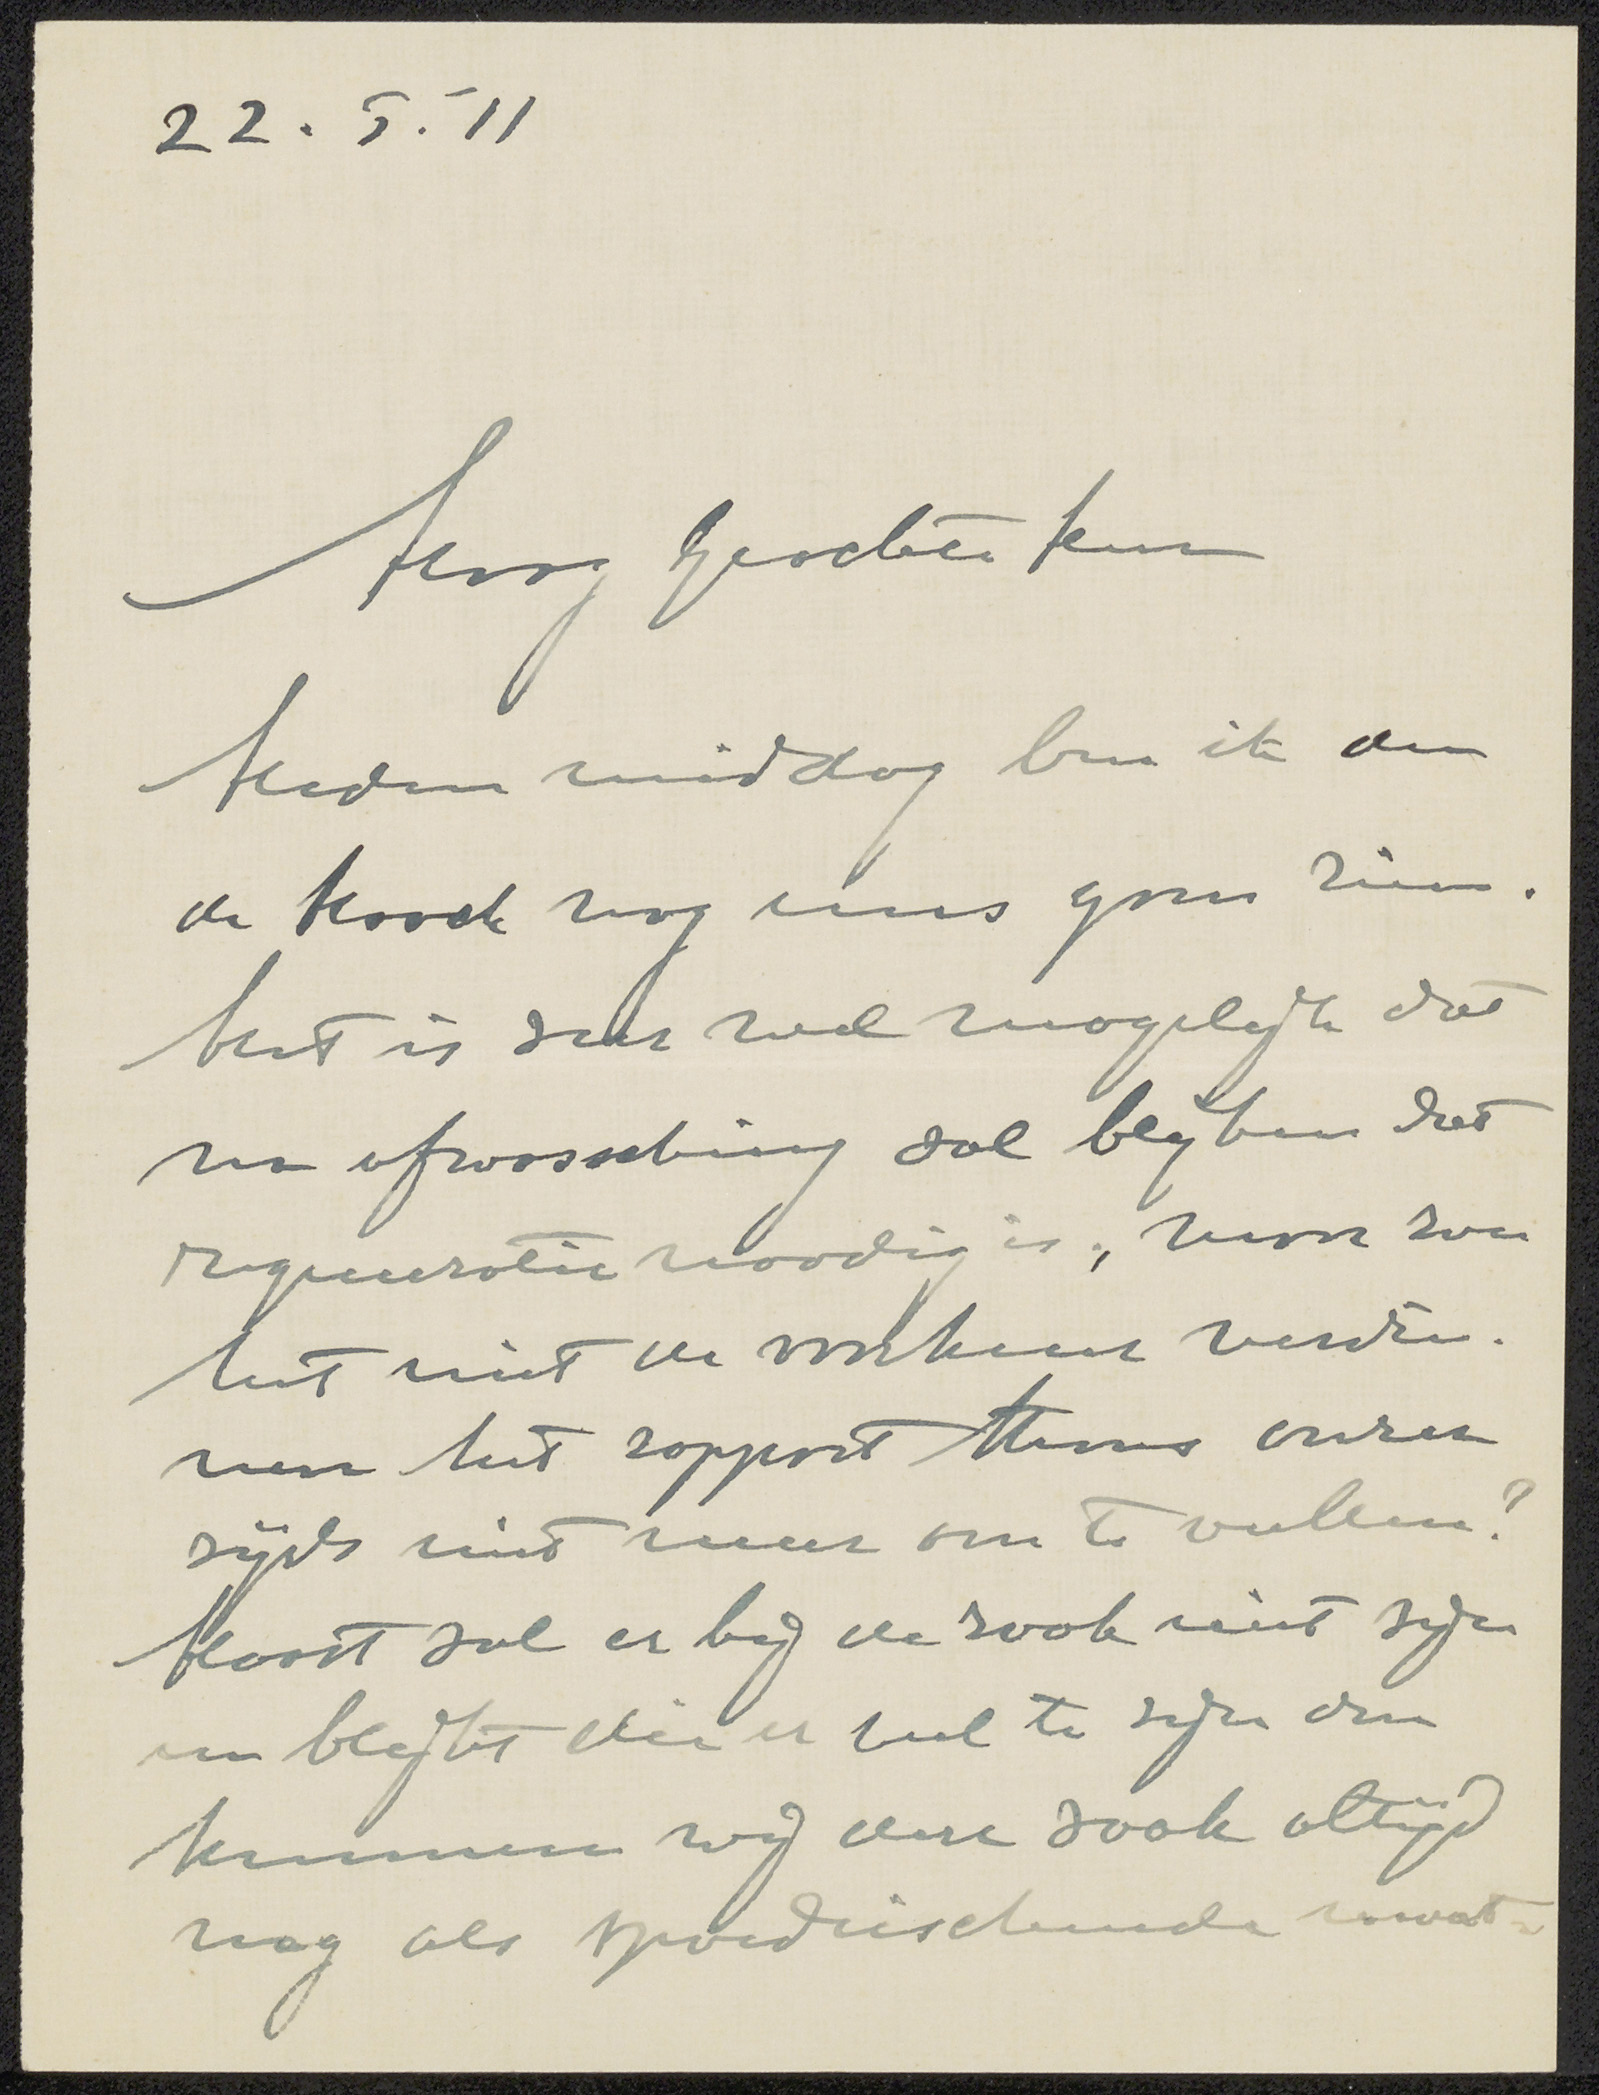 22.5.'11
Hoog Geachte Heer
Heden middag ben ik den
de Hooch nog eens gaan zien.
Het is zeer wel mogelijk dat
na afwassching zal blijken dat
regeneratie noodig is, maar zou
het niet de voorkeur verdie-
nen het rapport thans onzer
zijds niet meer om te vullen?
Haast zal er bij de zaak niet zijn
en blijkt die er wel te zijn dan
kunnen wij deze zaak altijd
nog als spoedeischende